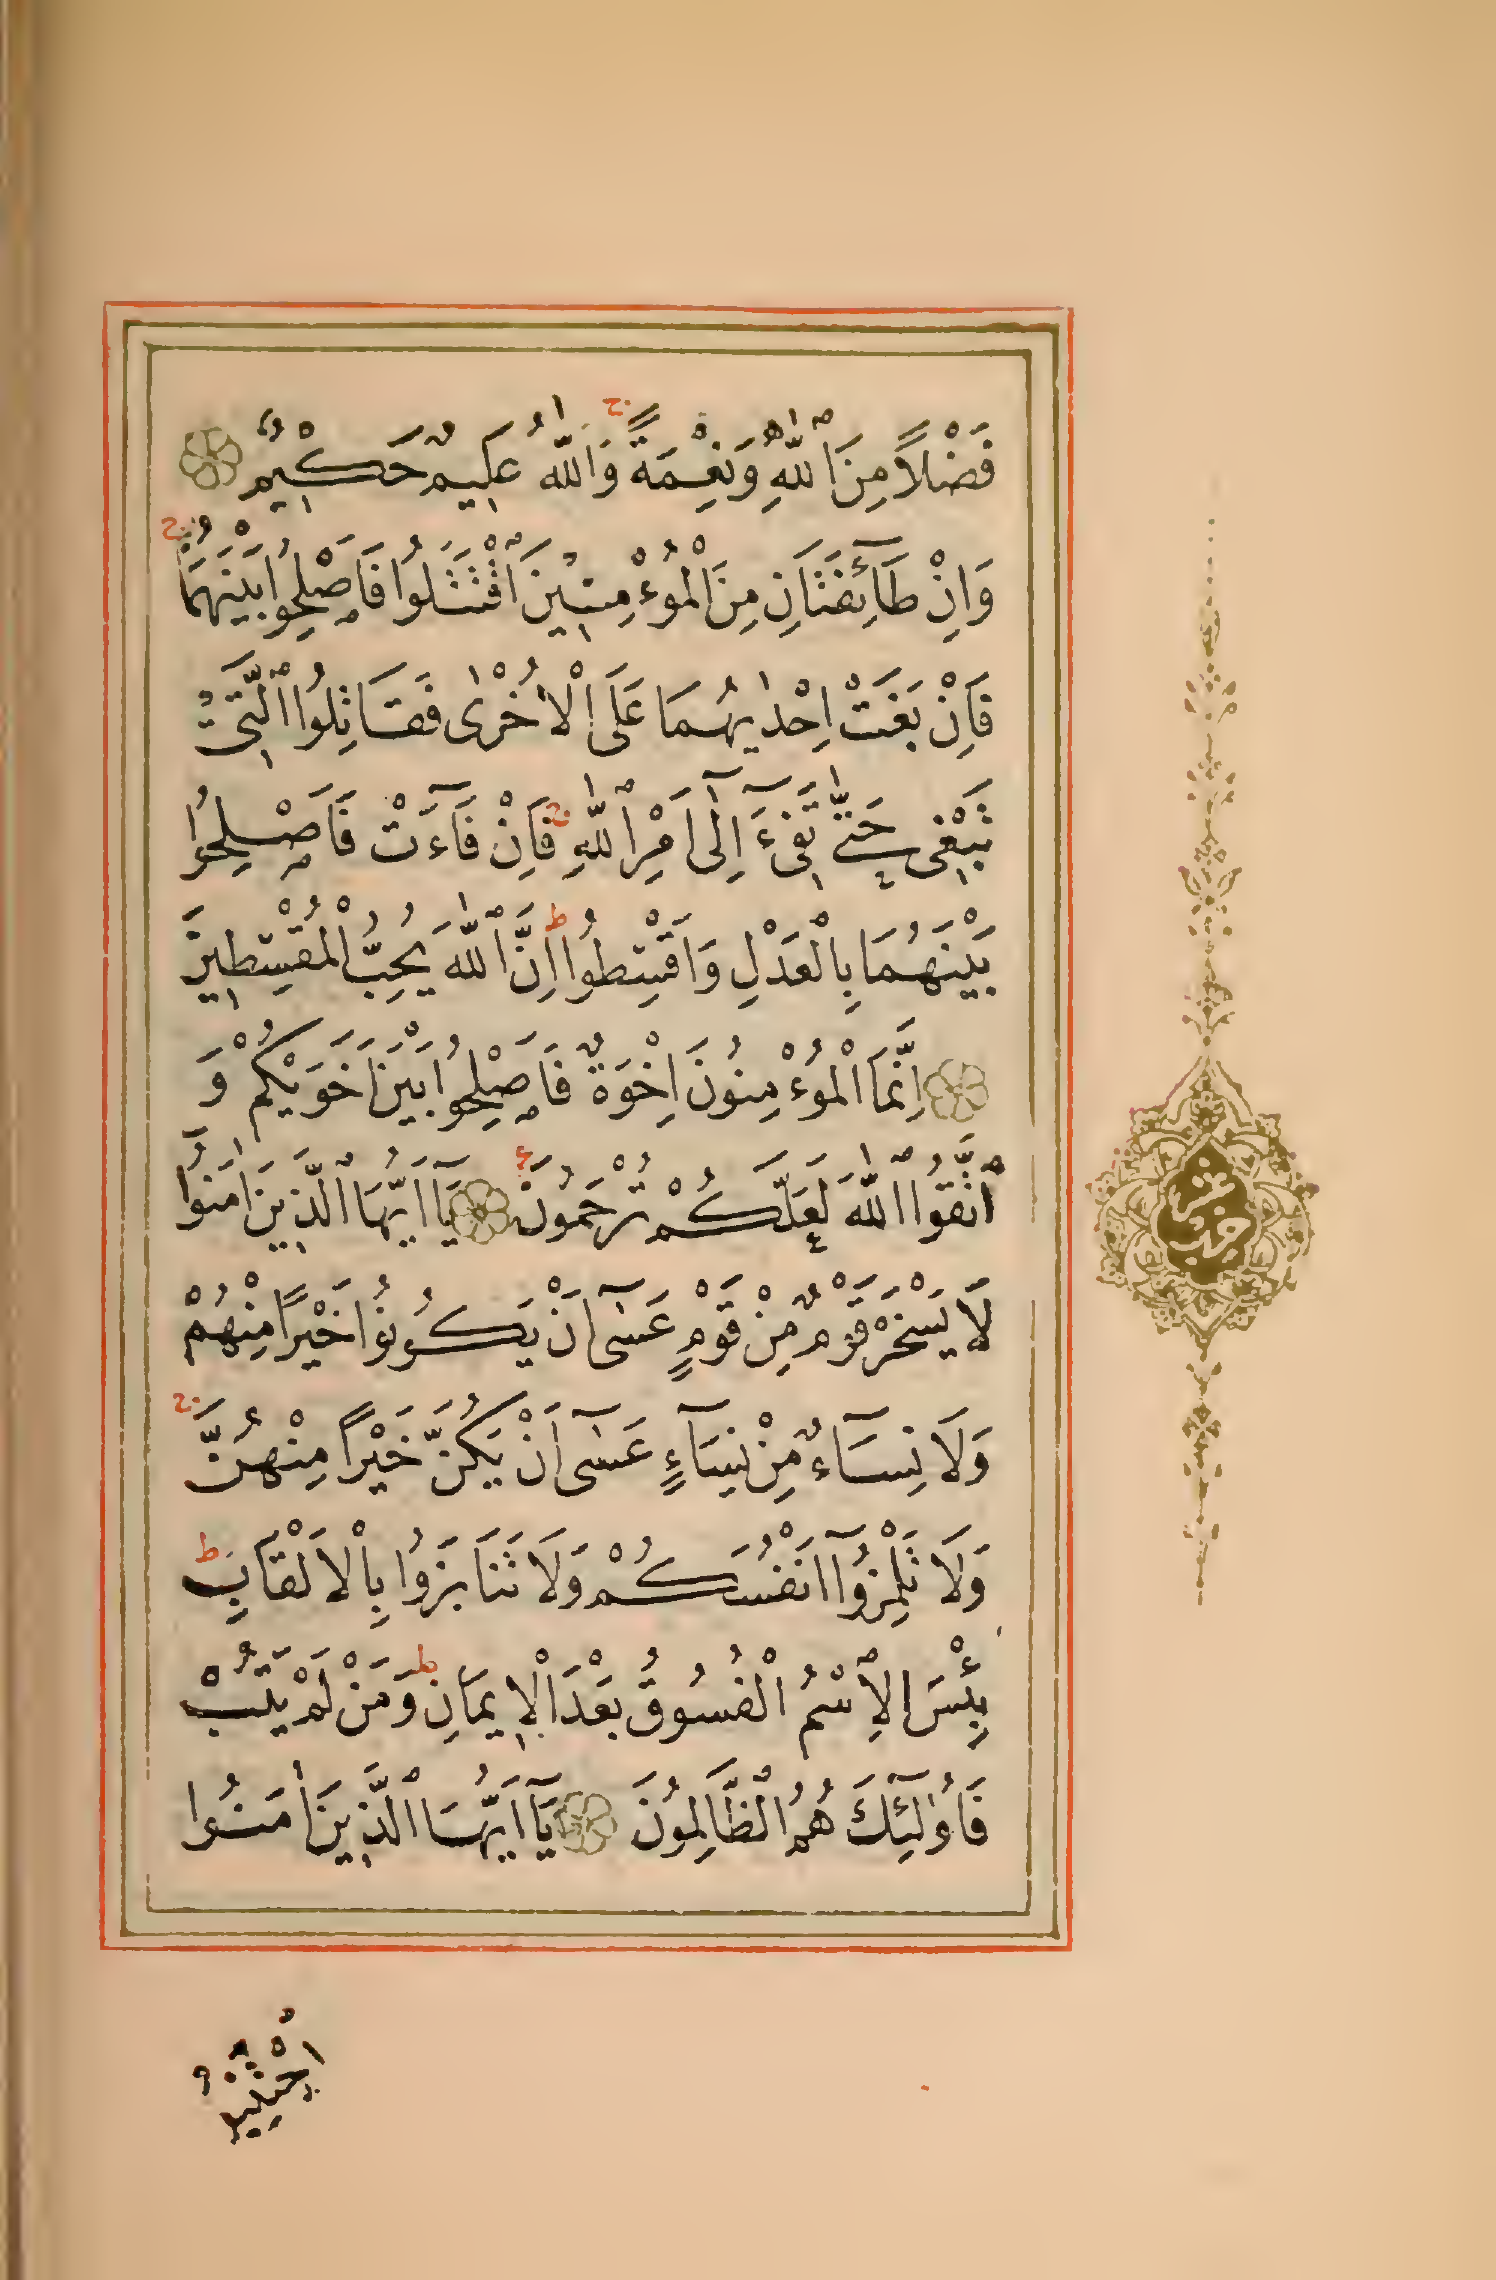 فَضْلاً مِنَ اللّٰهِ وَنِعْمَةً ج وَاللّٰهُ عَلِيمٌ حَكِيمٌ
وَاِنْ طَآئِفَتَانِ مِنَ الْمُؤْمِنِينَ اقْتَتَلُوا فَاَصْلِحُوا بَيْنَهُمَا ج
فَاِنْ بَغَتْ اِحْدٰيهُمَا عَلَى الْاُخْرٰى فَقَاتِلُوا الَّتِى
تَبْغِى حَتّٰى تَفِىٓءَ اِلٰٓى اَمْرِ اللّٰهِ ج فَاِنْ فَآءَتْ فَاَصْلِحُوا
بَيْنَهُمَا بِالْعَدْلِ وَاَقْسِطُوا ط اِنَّ اللّٰهَ يُحِبُّ الْمُقْسِطِينَ
اِنَّمَا الْمُؤْمِنُونَ اِخْوَةٌ فَاَصْلِحُوا بَيْنَ اَخَوَيْكُمْ وَ
اتَّقُوا اللّٰهَ لَعَلَّكُمْ تُرْحَمُونَ ع يَآ اَيُّهَا الَّذِينَ اٰمَنُوا
لَا يَسْخَرْ قَوْمٌ مِنْ قَوْمٍ عَسٰٓى اَنْ يَكُونُوا خَيْرًا مِنْهُمْ
وَلَا نِسَآءٌ مِنْ نِسَآءٍ عَسٰٓى اَنْ يَكُنَّ خَيْرًا مِنْهُنَّ ج
وَلَا تَلْمِزُوٓا اَنْفُسَكُمْ وَلَا تَنَابَزُوا بِالْاَلْقَابِ ط
بِئْسَ الِاسْمُ الْفُسُوقُ بَعْدَ الْاِيمَانِ ط وَمَنْ لَمْ يَتُبْ
فَاُولٰٓئِكَ هُمُ الظَّالِمُونَ يَآ اَيُّهَا الَّذِينَ اٰمَنُوا
اجْتَنِبُوا